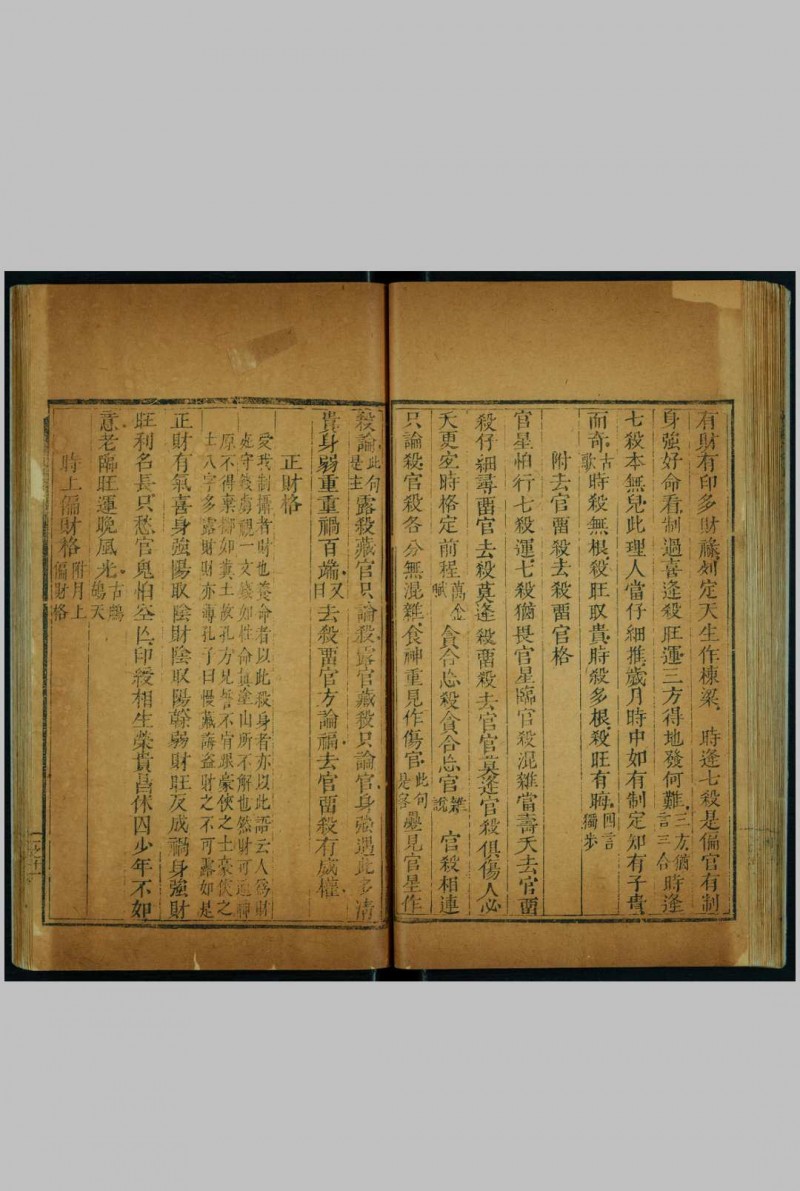 有財有印多財祿刻定天生作棟梁時逢七殺是偏官有制
身強好命看制過喜逢殺旺運三方得地發何難三方猶言三合時逢
七殺本無兒此理人當仔細推歲月時中如有制定知有子貴
而奇古歌時殺無根殺旺取貴時殺多根殺旺有晦四言獨步
附去官畱殺去殺畱官格
官星怕行七殺運七殺猶畏官星臨官殺混雜當壽夭去官畱
殺仔細尋畱官去殺莫逢殺畱殺去官官莫逢官殺俱傷人必
夭更宜時格定前程萬金賦貪合忘殺貪合忘官繫說官殺相連
只論殺官殺各分無混雜食神重見作傷官此句是客疊見官星作
殺論此句是主露殺藏官只論殺露官藏殺只論官身強遇此多清
貴身弱重重禍百端又曰去殺畱官方論禍去官畱殺有威權
正財格
愛我制攝者財也養命者以此殺身者亦以此語云人爲財
死守錢虜視一文錢如性命眞塗山所不解也然財可通神
原不得棄擲如糞土故孔方見誓不宜跟豪俠之士豪俠之
士八字多露財財亦薄孔子曰慢藏誨盜財之不可露如是
正財有氣喜身強陽取陰財陰取陽榦弱財旺反成禍身強財
旺利名長只愁官鬼怕空亡印綬相生榮貴昌休囚少年不如
意老臨旺運晚風光古鷓鴣天
時上偏財格附月上偏財格